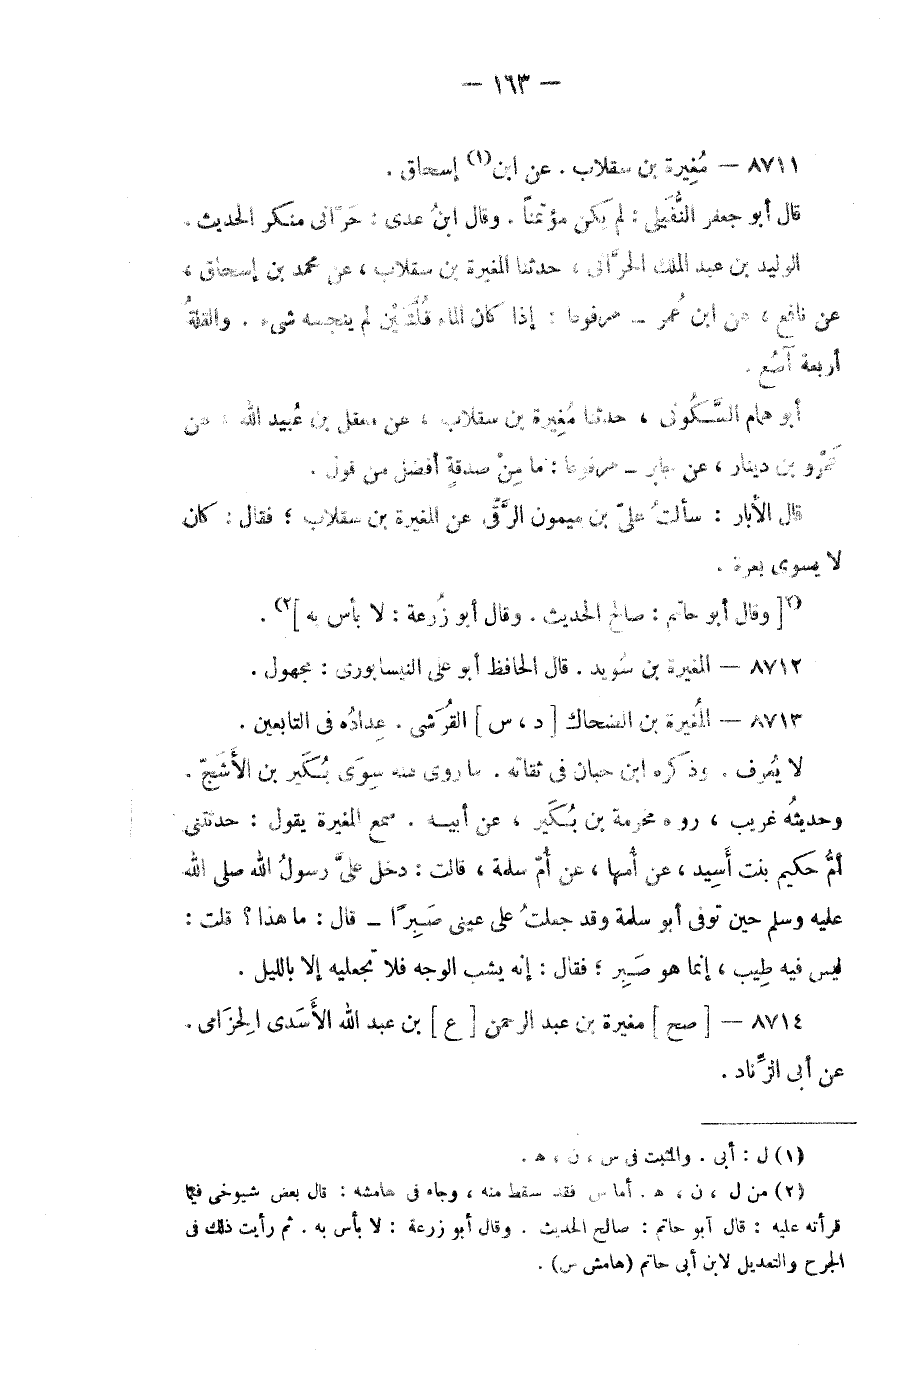 — ١٦٣ —
٨٧١١ — مُغِيرة بن سقلاب . عن ابن(١) إسحاق .
قال أبو جعفر النُّفَيلى : لم يكن مؤتمناً . وقال ابنُ عدى : حَرّانى منكر الحديث .
الوليد بن عبد الملك الحرَّانى ، حدثنا المغيرة بن سقلاب ، عن محمد بن إسحاق ،
عن نافع ، عن ابن عُمر — مرفوعا : إذا كان الماء قُلَّتَيْن لم ينجسه شىء . والقلةُ
أربعة آصُع .
أبو همام السَّكُونى ، حدثنا مُغِيرة بن سقلاب ، عن معقل بن عُبيد الله ، عن
عَمْرو بن دينار ، عن جابر — مرفوعا : ما مِنْ صدقةٍ أفضل من قول .
قال الأبار : سألتُ علىّ بن ميمون الرَّقّى عن المغيرة بن سقلاب ؛ فقال : كان
لا يسوى بعرة .
(٢)[ وقال أبو حاتم : صالح الحديث . وقال أبو زُرعة : لا بأس به ](٢) .
٨٧١٢ — المغيرة بن سُويد . قال الحافظ أبو على النيسابورى : مجهول .
٨٧١٣ — المُغيرة بن الضحاك [ د ، س ] القُرَشى . عِدادُه فى التابعين .
لا يُعرف . وذكره ابن حبان فى ثقاته . ما روى عنه سِوَى بُكَير بن الأَشَجّ .
وحديثُه غريب ، رواه مخرمة بن بُكَير ، عن أبيه . سمع المغيرة يقول : حدثتنى
أمُّ حكيم بنت أَسِيد ، عن أُمها ، عن أُمّ سلمة ، قالت : دخل علىَّ رسولُ الله صلى الله
عليه وسلم حين توفى أبو سلمة وقد جعلتُ على عينى صَبِرًا — قال : ما هذا ؟ قلت :
ليس فيه طِيب ، إنما هو صَبِر ؛ فقال : إنه يشب الوجه فلا تجعليه إلا بالليل .
٨٧١٤ — [ صح ] مغيرة بن عبد الرحمن [ ع ] بن عبد الله الأَسَدى الحِزَامى .
عن أبى الزِّناد .
(١) ل : أبى . والمثبت فى س ، ن ، ه .
(٢) من ل ، ن ، ه . أما س فقد سقط منه ، وجاء فى هامشه : قال بعض شيوخى فيما
قرأته عليه : قال أبو حاتم : صالح الحديث . وقال أبو زرعة : لا بأس به . ثم رأيت ذلك فى
الجرح والتعديل لابن أبى حاتم (هامش س) .